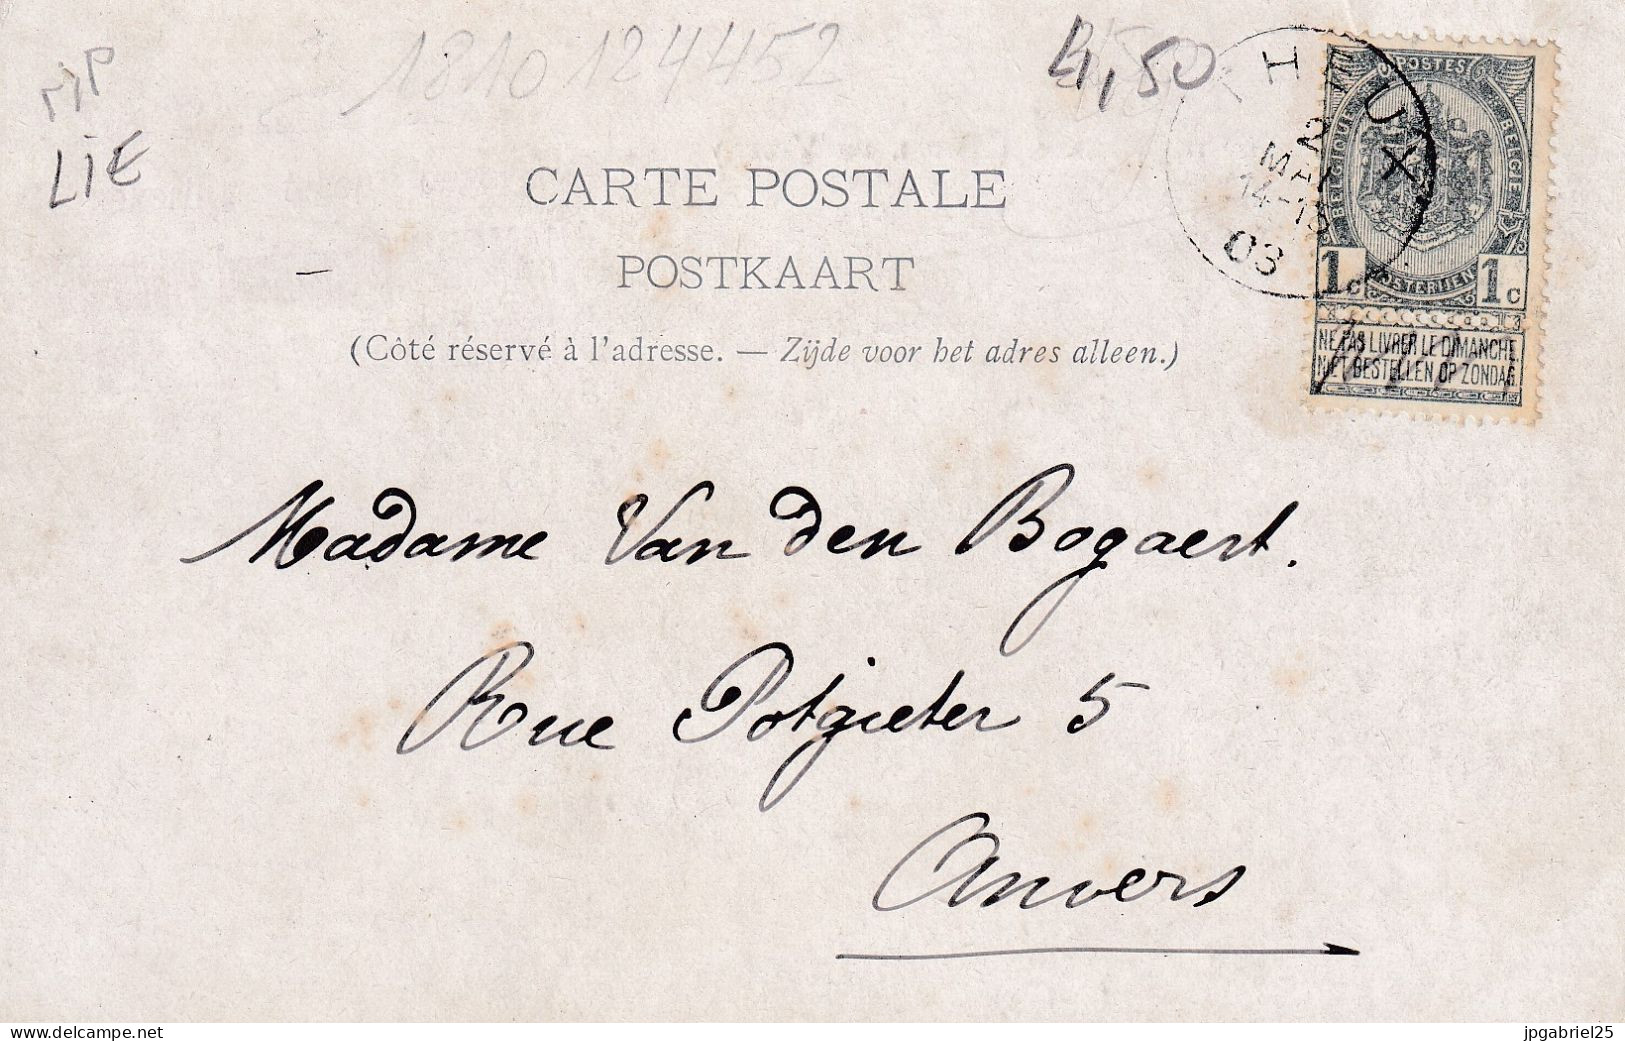 1810 124452
4,50
LIE
CARTE POSTALE
POSTKAART
(Côté réservé à l'adresse. — Zijde voor het adres alleen.)
THEUX
2
MAI
14-15
03
POSTES
BELGIQUE
BELGIE
POSTERIJEN
1c 1c
NE PAS LIVRER LE DIMANCHE.
NIET BESTELLEN OP ZONDAG.
Madame Van den Bogaert.
Rue Potgieter 5
Anvers
delcampe.net
jpgabriel25